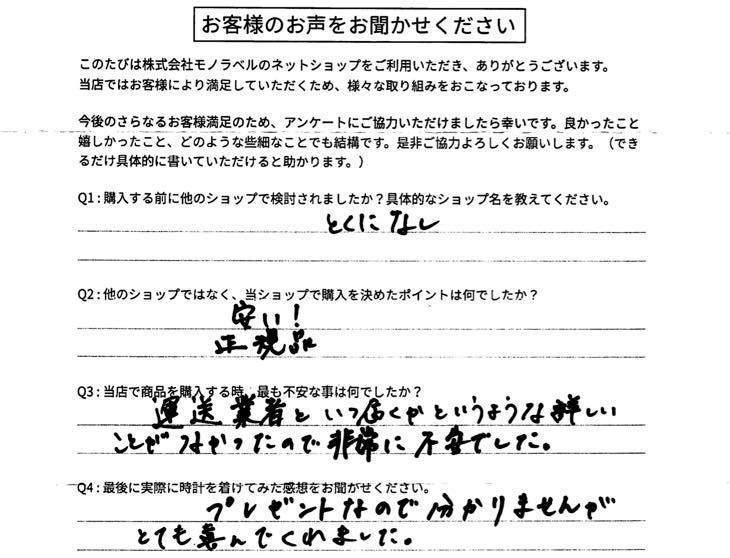 お客様のお声をお聞かせください
このたびは株式会社モノラベルのネットショップをご利用いただき、ありがとうございます。
当店ではお客様により満足していただくため、様々な取り組みをおこなっております。
今後のさらなるお客様満足のため、アンケートにご協力いただけましたら幸いです。良かったこと
嬉しかったこと、どのような些細なことでも結構です。是非ご協力よろしくお願いします。（でき
るだけ具体的に書いていただけると助かります。）
Q1：購入する前に他のショップで検討されましたか？具体的なショップ名を教えてください。
とくになし
Q2：他のショップではなく、当ショップで購入を決めたポイントは何でしたか？
安い！
正規品
Q3：当店で商品を購入する時、最も不安な事は何でしたか？
運送業者といつ届くかというような詳しい
ことがなかったので非常に不安でした。
Q4：最後に実際に時計を着けてみた感想をお聞かせください。
プレゼントなので分かりませんが
とても喜んでくれました。